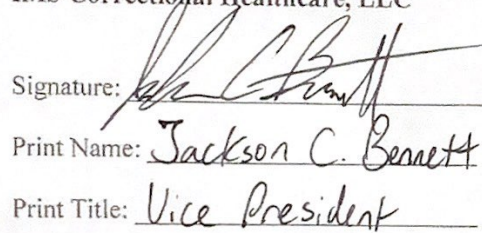 Correctional Healthcare, LLC
Signature:
Print Name: Jackson C. Bennett
Print Title: Vice President